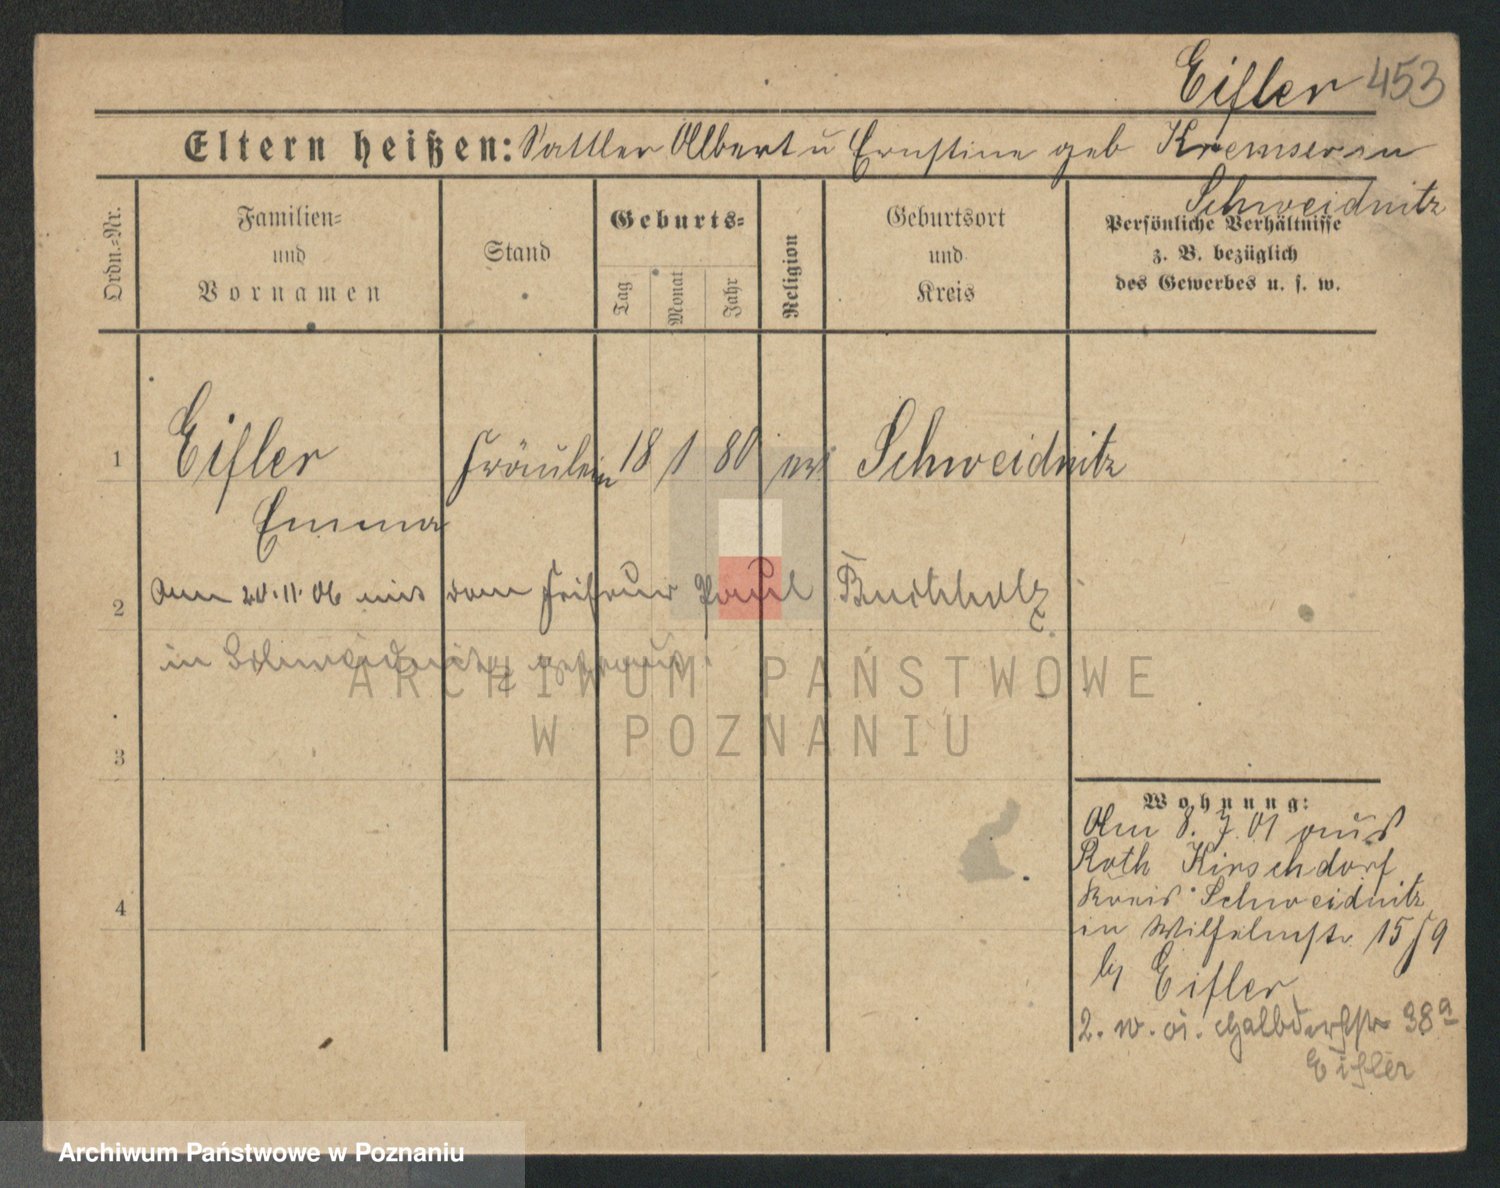 Eifler 453
Eltern heißen: Sattler Albert u Ernstine geb Kremser in
Schweidnitz
Ordn.-Nr.
Familien-
und
Vornamen
Stand
Geburts-
Tag
Monat
Jahr
Religion
Geburtsort
und
Kreis
Persönliche Verhältnisse
z. B. bezüglich
des Gewerbes u. s. w.
1 Eifler Fräulein 18 1 80 Schweidnitz
Emma
2 Am 20.11.06 mit dem Friseur Paul Buchholz
in Schweidnitz getraut.
3
4
Wohnung:
Am 8. 7. 01 aus
Roth Kirschdorf
Kreis Schweidnitz
in Wilhelmstr 15
Eifler
2. w. 38a
Eifler
ARCHIWUM PAŃSTWOWE
W POZNANIU
Archiwum Państwowe w Poznaniu